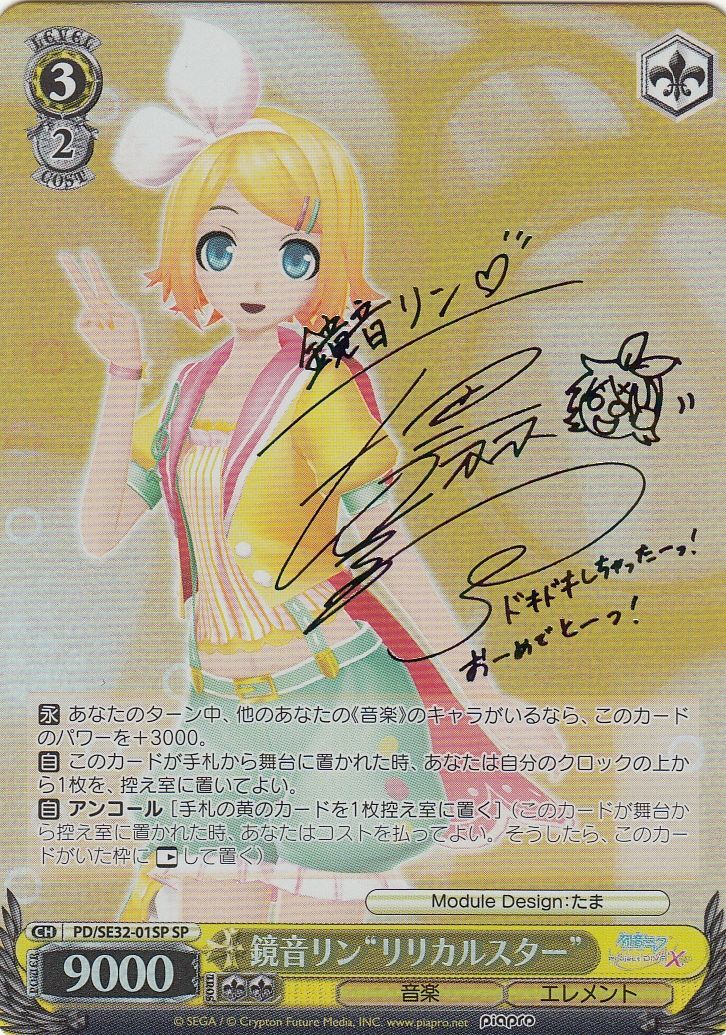 LEVEL
3
2
COST
鏡音リン♡
ドキドキしちゃったーっ!
おーめでとーっ!
永 あなたのターン中、他のあなたの《音楽》のキャラがいるなら、このカード
のパワーを+3000。
自 このカードが手札から舞台に置かれた時、あなたは自分のクロックの上か
ら1枚を、控え室に置いてよい。
自 アンコール [手札の黄のカードを1枚控え室に置く](このカードが舞台か
ら控え室に置かれた時、あなたはコストを払ってよい。そうしたら、このカー
ドがいた枠に して置く)
Module Design:たま
CH PD/SE32-01SP SP
鏡音リン“リリカルスター”
初音ミク
Project DIVA X
POWER
9000
SOUL
音楽
エレメント
© SEGA / © Crypton Future Media, INC. www.piapro.net piapro